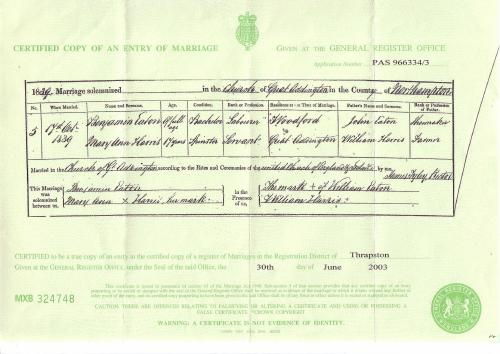 CERTIFIED COPY OF AN ENTRY OF MARRIAGE
GIVEN AT THE GENERAL REGISTER OFFICE
Application Number PAS 966334/3
1839 Marriage solemnized in the Church of Great Addington in the County of Northampton
No. When Married. Name and Surname. Age. Condition. Rank or Profession. Residence at the Time of Marriage. Father's Name and Surname. Rank or Profession of Father.
5 17th Oct 1839 Benjamin Eaton of full age Bachelor Labourer Woodford John Eaton Shoemaker
Mary Ann Harris 17 years Spinster Servant Great Addington William Harris Farmer
Married in the Church of Gt Addington according to the Rites and Ceremonies of the by me
James Tyley Rector
This Marriage was solemnized between us,
Benjamin Eaton
Mary Ann x Harris, her mark
in the Presence of us,
The mark + of William Eaton
William Harris
CERTIFIED to be a true copy of an entry in the certified copy of a register of Marriages in the Registration District of Thrapston
Given at the GENERAL REGISTER OFFICE, under the Seal of the said Office, the 30th day of June 2003
MXB 324748
CAUTION: THERE ARE OFFENCES RELATING TO FALSIFYING OR ALTERING A CERTIFICATE AND USING OR POSSESSING A FALSE CERTIFICATE ©CROWN COPYRIGHT
WARNING: A CERTIFICATE IS NOT EVIDENCE OF IDENTITY.